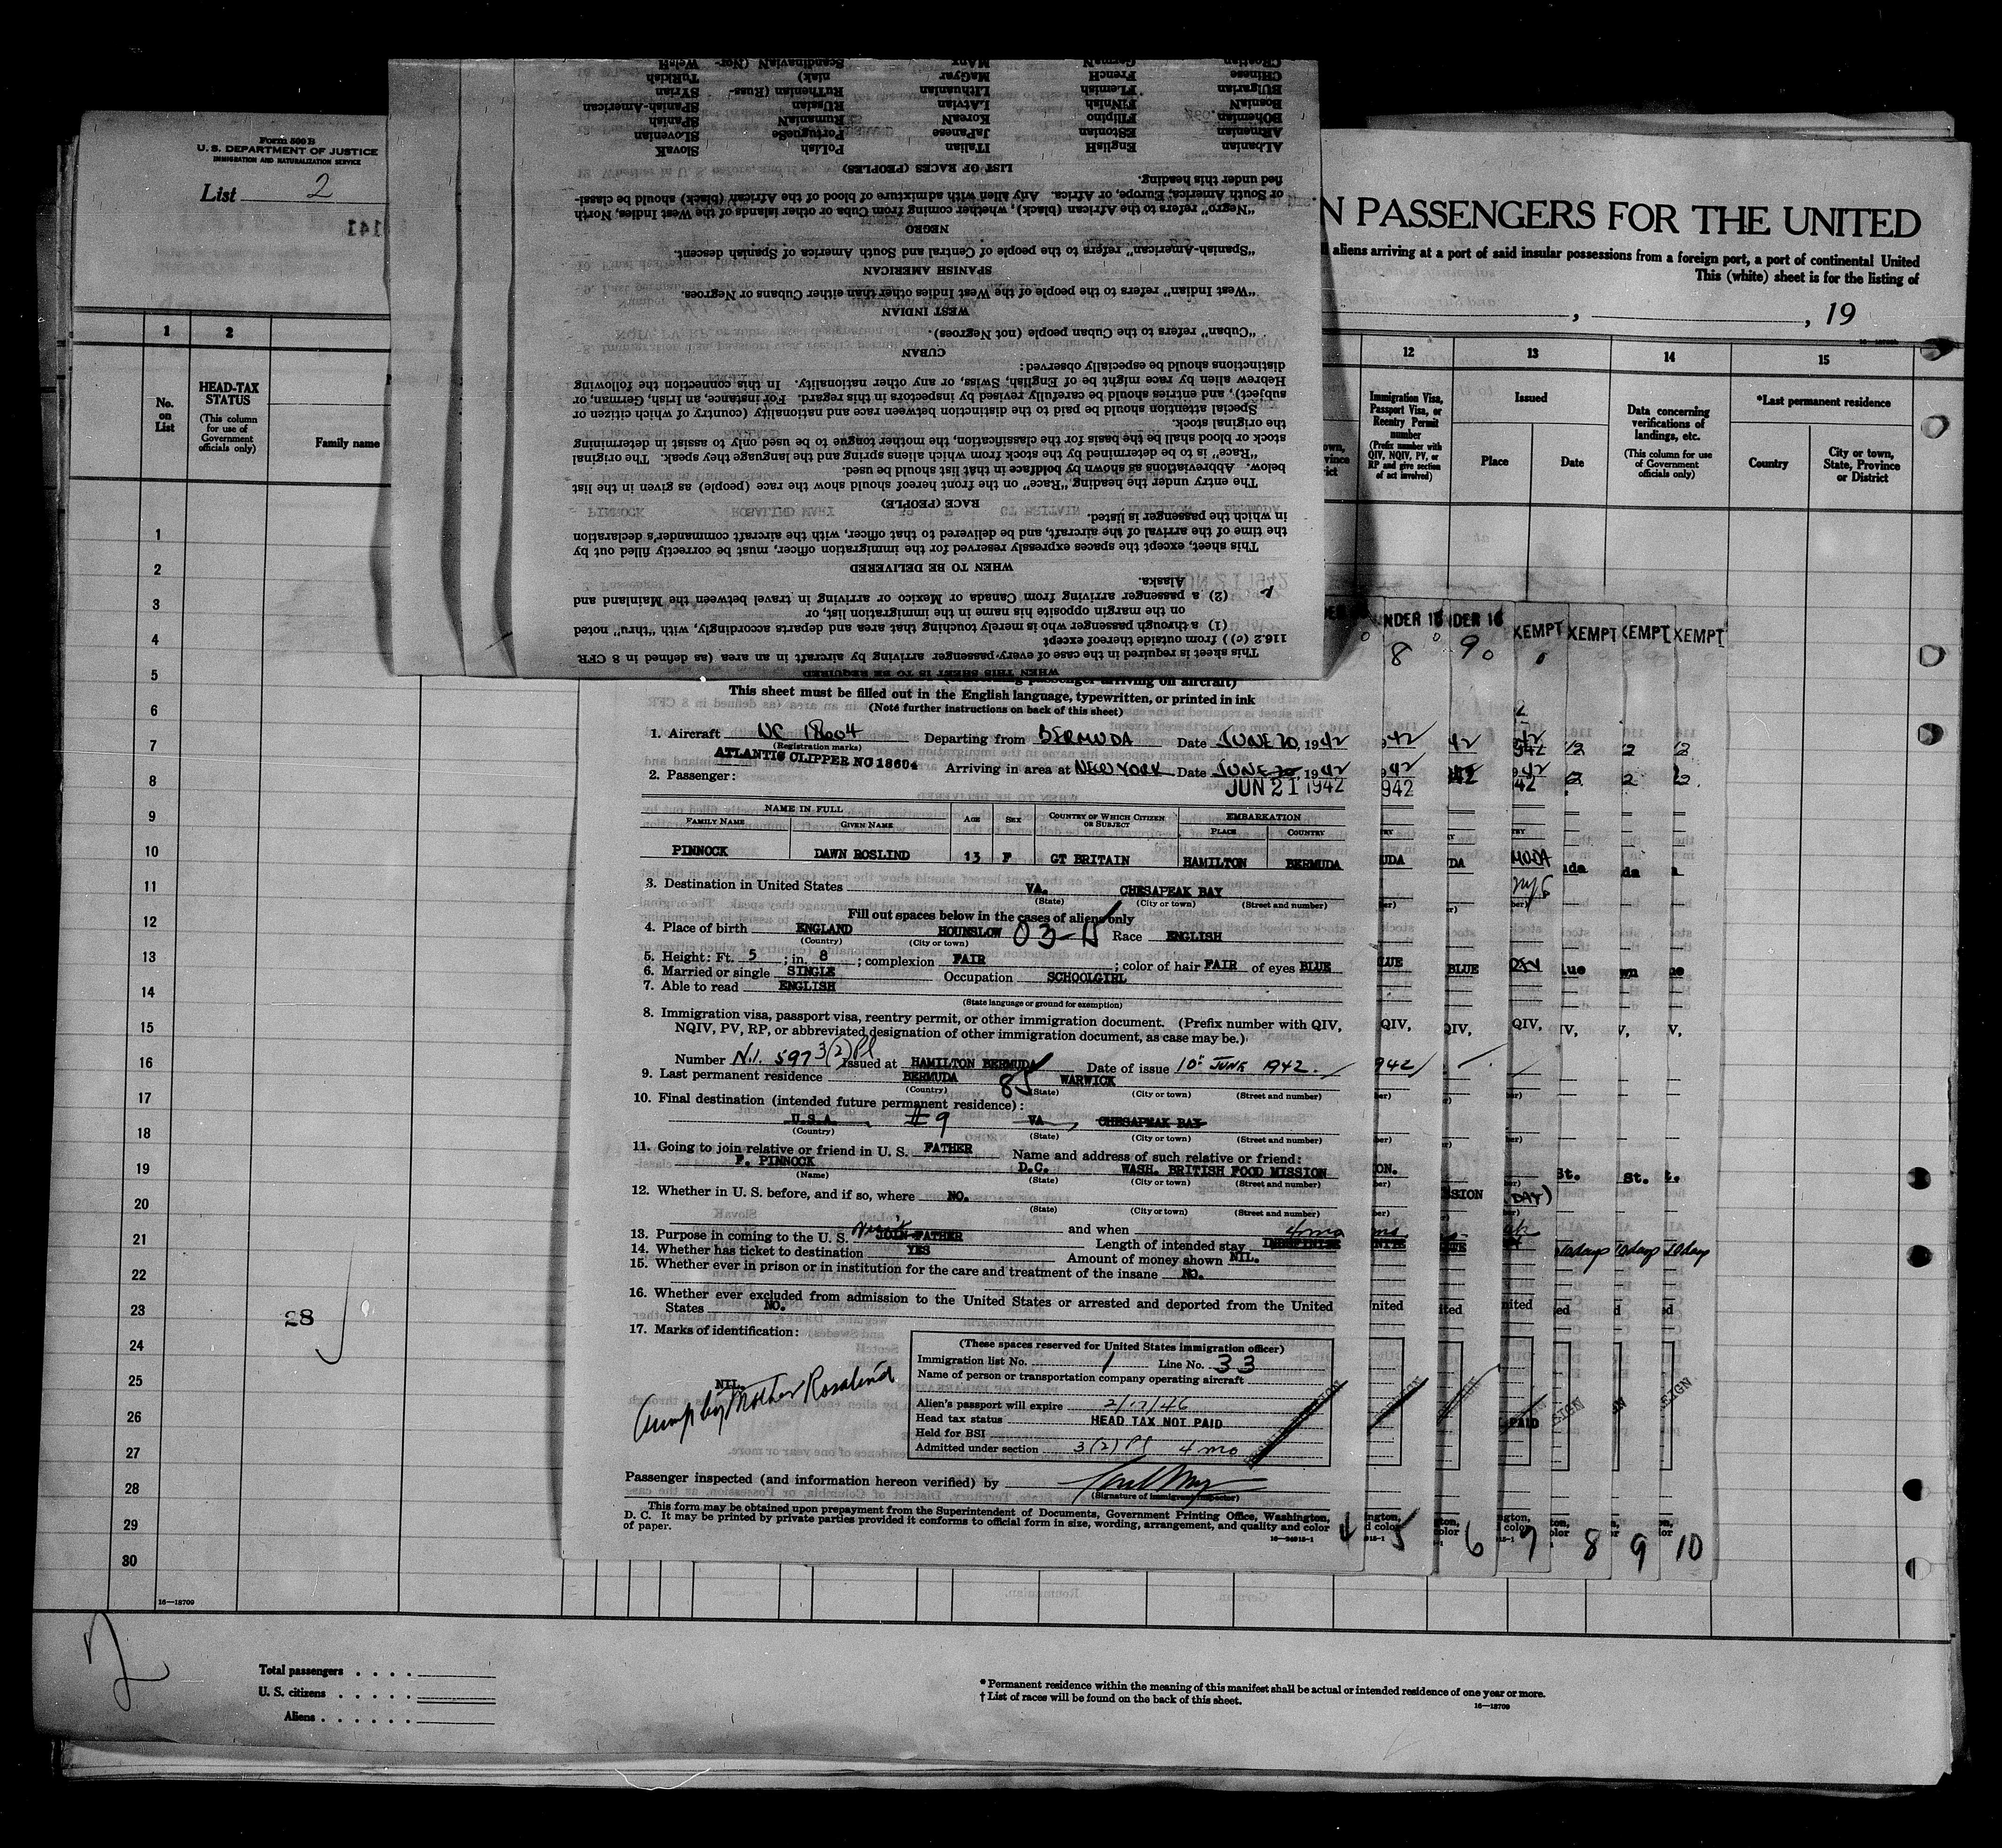 Form 500 B
U. S. DEPARTMENT OF JUSTICE
IMMIGRATION AND NATURALIZATION SERVICE
List 2
N PASSENGERS FOR THE UNITED
aliens arriving at a port of said insular possessions from a foreign port, a port of continental United
This (white) sheet is for the listing of
, , 19
1 2 12 13 14 15
No. on List
HEAD-TAX STATUS
(This column for use of Government officials only)
Family name
Immigration Visa, Passport Visa, or Reentry Permit number
(Prefix number with QIV, NQIV, PV, or RP and give section of act involved)
Issued
Place Date
Data concerning verifications of landings, etc.
(This column for use of Government officials only)
*Last permanent residence
Country
City or town, State, Province or District
WHEN THIS SHEET IS TO BE REQUIRED
This sheet is required in the case of every passenger arriving by aircraft in an area (as defined in 8 CFR
116.2 (c)) from outside thereof except
(1) a through passenger who is merely touching that area and departs accordingly, with "thru" noted
on the margin opposite his name in the immigration list, or
(2) a passenger arriving from Canada or Mexico or arriving in travel between the Mainland and
Alaska.
WHEN TO BE DELIVERED
This sheet, except the spaces expressly reserved for the immigration officer, must be correctly filled out by
the time of the arrival of the aircraft, and be delivered to that officer, with the aircraft commander's declaration
in which the passenger is listed.
RACE (PEOPLE)
The entry under the heading "Race" on the front hereof should show the race (people) as given in the list
below. Abbreviations as shown by boldface in that list should be used.
"Race" is to be determined by the stock from which aliens spring and the language they speak. The original
stock or blood shall be the basis for the classification, the mother tongue to be used only to assist in determining
the original stock.
Special attention should be paid to the distinction between race and nationality (country of which citizen or
subject), and entries should be carefully revised by inspectors in this regard. For instance, an Irish, German, or
Hebrew alien by race might be of English, Swiss, or any other nationality. In this connection the following
distinctions should be especially observed:
CUBAN
"Cuban" refers to the Cuban people (not Negroes).
WEST INDIAN
"West Indian" refers to the people of the West Indies other than either Cubans or Negroes.
SPANISH AMERICAN
"Spanish-American" refers to the people of Central and South America of Spanish descent.
NEGRO
"Negro" refers to the African (black), whether coming from Cuba or other islands of the West Indies, North
or South America, Europe, or Africa. Any alien with admixture of blood of the African (black) should be classi-
fied under this heading.
LIST OF RACES (PEOPLES)
ALbanian EnglisH ITalian PoLish SlovaK
ARmenian EStonian JaPanese PortugueSe SLOvenian
BOhemian FIlipino KoreaN RumaniaN SPanish
BosniaN FiNNish LAtvian RUssian SPanish-American
BUlgarian FLemish LIthuanian RuThenian (Russ- SYrian
CHinese FrencH MaGyar niak) TuRkish
CRoatian GermaN MAnx ScandinaviaN (Nor- WelsH
This sheet must be filled out in the English language, typewritten, or printed in ink
(Note further instructions on back of this sheet)
1. Aircraft NC 18604 Departing from BERMUDA Date JUNE 20, 1942
(Registration marks)
ATLANTIC CLIPPER NC 18604 Arriving in area at NEW YORK Date JUNE 20, 1942
2. Passenger: JUN 21 1942
NAME IN FULL
FAMILY NAME GIVEN NAME AGE SEX COUNTRY OF WHICH CITIZEN OR SUBJECT EMBARKATION PLACE COUNTRY
PINNOCK DAWN ROSLIND 13 F GT BRITAIN HAMILTON BERMUDA
3. Destination in United States VA. CHESAPEAK BAY
(State) (City or town) (Street and number)
Fill out spaces below in the cases of aliens only
4. Place of birth ENGLAND HOUNSLOW Race ENGLISH
(Country) (City or town)
5. Height: Ft. 5; in. 8; complexion FAIR; color of hair FAIR of eyes BLUE
6. Married or single SINGLE Occupation SCHOOLGIRL
7. Able to read ENGLISH
(State language or ground for exemption)
8. Immigration visa, passport visa, reentry permit, or other immigration document. (Prefix number with QIV,
NQIV, PV, RP, or abbreviated designation of other immigration document, as case may be.)
Number N.I. 597 3(2) Pl Issued at HAMILTON BERMUDA Date of issue 10th JUNE 1942.
9. Last permanent residence BERMUDA 85 WARWICK
(Country) (State) (City or town) (Street and number)
10. Final destination (intended future permanent residence):
U.S.A. II 9 VA CHESAPEAK BAY
(Country) (State) (City or town) (Street and number)
11. Going to join relative or friend in U. S. FATHER Name and address of such relative or friend:
F. PINNOCK D.C. WASH. BRITISH FOOD MISSION
(Name) (State) (City or town) (Street and number)
12. Whether in U. S. before, and if so, where NO.
(State) (City or town) (Street and number)
and when
13. Purpose in coming to the U. S. Visit JOIN FATHER Length of intended stay 4 mo INDEFINITE
14. Whether has ticket to destination YES Amount of money shown NIL.
15. Whether ever in prison or in institution for the care and treatment of the insane NO.
16. Whether ever excluded from admission to the United States or arrested and deported from the United
States NO.
17. Marks of identification:
NIL.
Accomp by Mother Rosalind
(These spaces reserved for United States immigration officer)
Immigration list No. 1 Line No. 33
Name of person or transportation company operating aircraft
Alien's passport will expire 2/17/46
Head tax status HEAD TAX NOT PAID
Held for BSI
Admitted under section 3(2) Pl 4 mo
Passenger inspected (and information hereon verified) by
(Signature of immigrant inspector)
This form may be obtained upon prepayment from the Superintendent of Documents, Government Printing Office, Washington,
D. C. It may be printed by private parties provided it conforms to official form in size, wording, arrangement, and quality and color
of paper.
5 6 7 8 9 10
1
2
3
4
5
6
7
8
9
10
11
12
13
14
15
16
17
18
19
20
21
22
23
28
24
25
26
27
28
29
30
16—18709
2
Total passengers . . . .
U. S. citizens . . . . .
Aliens . . . . . .
* Permanent residence within the meaning of this manifest shall be actual or intended residence of one year or more.
† List of races will be found on the back of this sheet.
16—18709